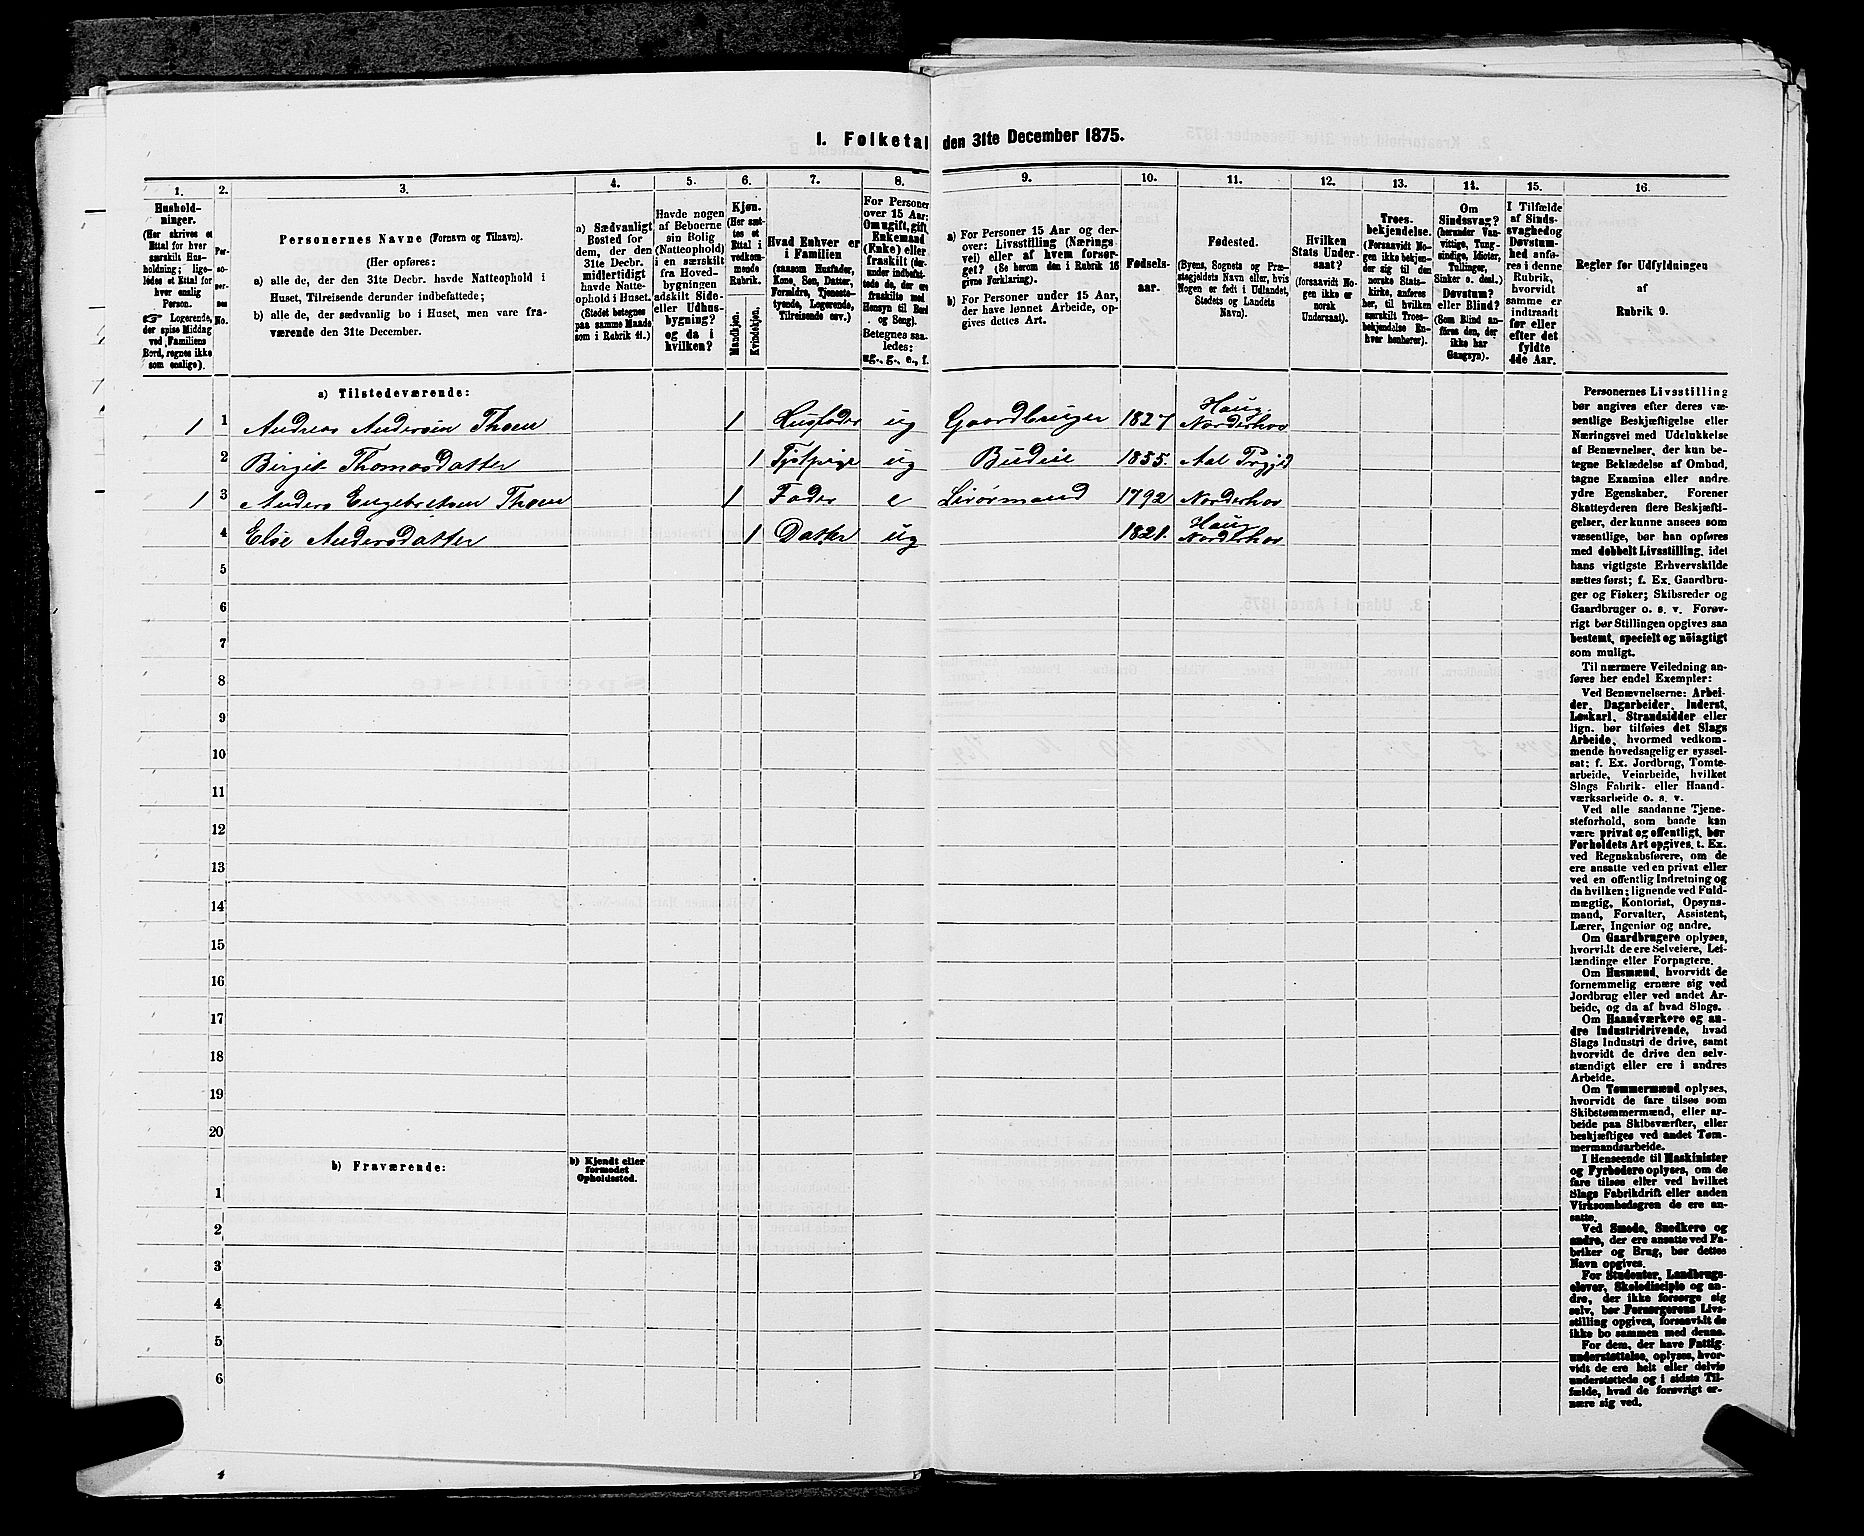 1. Folketal den 31te December 1875.
1. 2. 3. 4. 5. 6. 7. 8. 9. 10. 11. 12. 13. 14. 15. 16.
Hushold-
ninger.
(Her skrives et
Ettal for hver
særskilt Hus-
holdning; lige-
ledes et Ettal for
hver enslig
Person.
☞ Logerende,
der spise Middag
ved Familiens
Bord, regnes ikke
som enslige).
Per-
so-
ner-
nes
No.
Personernes Navne (Fornavn og Tilnavn).
(Her opføres:
a) alle de, der den 31te Decbr. havde Natteophold i
Huset, Tilreisende derunder indbefattede;
b) alle de, der sædvanlig bo i Huset, men vare fra-
værende den 31te December.
a) Sædvanligt
Bosted for
dem, der den
31te Decbr.
midlertidigt
havde Natte-
ophold i Huset.
(Stedet betegnes
paa samme Maade
som i Rubrik 11.)
Havde nogen
af Beboerne
sin Bolig
(Natteophold)
i en særskilt
fra Hoved-
bygningen
adskilt Side-
eller Udhus-
bygning?
og da i
hvilken?
Kjøn.
(Her sæt-
tes et
Ettal i
vedkom-
mende
Rubrik.
Mandkjøn.
Kvindekjøn.
Hvad Enhver er
i Familien
(saasom Husfader,
Kone, Søn, Datter,
Forældre, Tjeneste-
tyende, Logerende,
Tilreisende osv.)
For Personer
over 15 Aar:
Om ugift, gift,
Enkemand
(Enke) eller
fraskilt (her-
under indbefat-
tede de, der ere
fraskilte med
Hensyn til Bord
og Seng).
Betegnes saa-
ledes:
ug., g., e., f.
a) For Personer 15 Aar og der-
over: Livsstilling (Nærings-
vei) eller af hvem forsør-
get? (Se herom den i Rubrik 16
givne Forklaring).
b) For Personer under 15 Aar,
der have lønnet Arbeide, op-
gives dettes Art.
Fødsels-
aar.
Fødested.
(Byens, Sognets og Præ-
stegjeldets Navn eller, hvis
Nogen er født i Udlandet,
Stedets og Landets
Navn).
Hvilken
Stats Under-
saat?
(forsaavidt No-
gen ikke er
norsk
Undersaat).
Troes-
bekjendelse.
(Forsaavidt No-
gen ikke bekjen-
der sig til den
norske Stats-
kirke, anføres
her, til hvilken
særskilt Troes-
bekjendelse En-
hver henhører).
Om
Sindssvag?
(herunder Van-
vittige, Tung-
sindige, Idioter,
Tullinger,
Sinker o. desl.)
Døvstum?
eller Blind?
(Som Blind an-
føres den, der
ikke har
Gangsyn).
I Tilfælde
af Sinds-
svaghed og
Døvstum-
hed anfø-
res i denne
Rubrik,
hvorvidt
samme er
indtraadt
før eller
efter det
fyldte
4de Aar.
Regler for Udfyldningen
af
Rubrik 9.
a) Tilstedeværende:
1 1 Andreas Andersen Thoen 1 Husfader ug Gaardbruger 1827 Haug Norderhov
2 Birgit Thomasdatter 1 Tjstpige ug Budeie 1855. Aal Prgjd
1 3 Anders Engebretsen Thoen 1 Fader e Livørmand 1792 Norderhov
4 Else Andersdatter 1 Datter ug 1821. Haug Norderhov
5
6
7
8
9
10
11
12
13
14
15
16
17
18
19
20
b) Fraværende:
b) Kjendt eller
formodet
Opholdssted.
1
2
3
4
5
6
Personernes Livsstilling
bør angives efter deres væ-
sentlige Beskjæftigelse eller
Næringsvei med Udelukkelse
af Benævnelser, der kun be-
tegne Beklædelse af Ombud,
tagne Examina eller andre
ydre Egenskaber. Forener
Skatteyderen flere Beskjæfti-
gelser, der kunne ansees som
væsentlige, bør han opføres
med dobbelt Livsstilling, idet
hans vigtigste Erhvervskilde
sættes først; f. Ex. Gaardbru-
ger og Fisker; Skibsreder og
Gaardbruger o. s. v. Forøv-
rigt bør Stillingen opgives saa
bestemt, specielt og nöiagtigt
som muligt.
Til nærmere Veiledning an-
føres her endel Exempler:
Ved Benævnelserne: Arbei-
der, Dagarbeider, Inderst,
Løskarl, Strandsidder eller
lign. bør tilføies det Slags
Arbeide, hvormed vedkom-
mende hovedsagelig er syssel-
sat; f. Ex. Jordbrug, Tomte-
arbeide, Veiarbeide, hvilket
Slags Fabrik- eller Haand-
værksarbeide o. s. v.
Ved alle saadanne Tjene-
steforhold, som baade kan
være privat og offentligt, bør
Forholdets Art opgives, t. Ex.
ved Regnskabsførere, om de
ere ansatte ved en privat eller
ved en offentlig Indretning og
da hvilken; lignende ved Fuld-
mægtig, Kontorist, Opsyns-
mand, Forvalter, Assistent,
Lærer, Ingeniør og andre.
Om Gaardbrugere oplyses,
hvorvidt de ere Selveiere, Lei-
lændinge eller Forpagtere.
Om Husmænd, hvorvidt de
fornemmelig ernære sig ved
Jordbrug eller ved andet Ar-
beide, og da af hvad Slags.
Om Haandværkere og an-
dre Industridrivende, hvad
Slags Industri de drive, samt
hvorvidt de drive den selv-
stændigt eller ere i andres
Arbeide.
Om Tømmermænd oplyses,
hvorvidt de fare tilsøs som
Skibstømmermænd, eller ar-
beide paa Skibsværfter, eller
beskjæftiges ved andet Tøm-
mermandsarbeide.
I Henseende til Maskinister
og Fyrbødere oplyses, om de
fare tilsøs eller ved hvilket
Slags Fabrikdrift eller anden
Virksomhedsgren de ere an-
satte.
Ved Smede, Snedkere og
andre, der ere ansatte ved Fa-
briker og Brug, bør dettes
Navn opgives.
For Studenter, Landbrugs-
elever, Skoledisciple og an-
dre, der ikke forsørge sig
selv, bør Forsørgerens Livs-
stilling opgives, forsaavidt de
ikke bo sammen med denne.
For dem, der have Fattig-
understøttelse, oplyses, hvor-
vidt de ere helt eller delvis
understøttede og i sidste Til-
fælde, hvad de forøvrigt er-
nære sig ved.